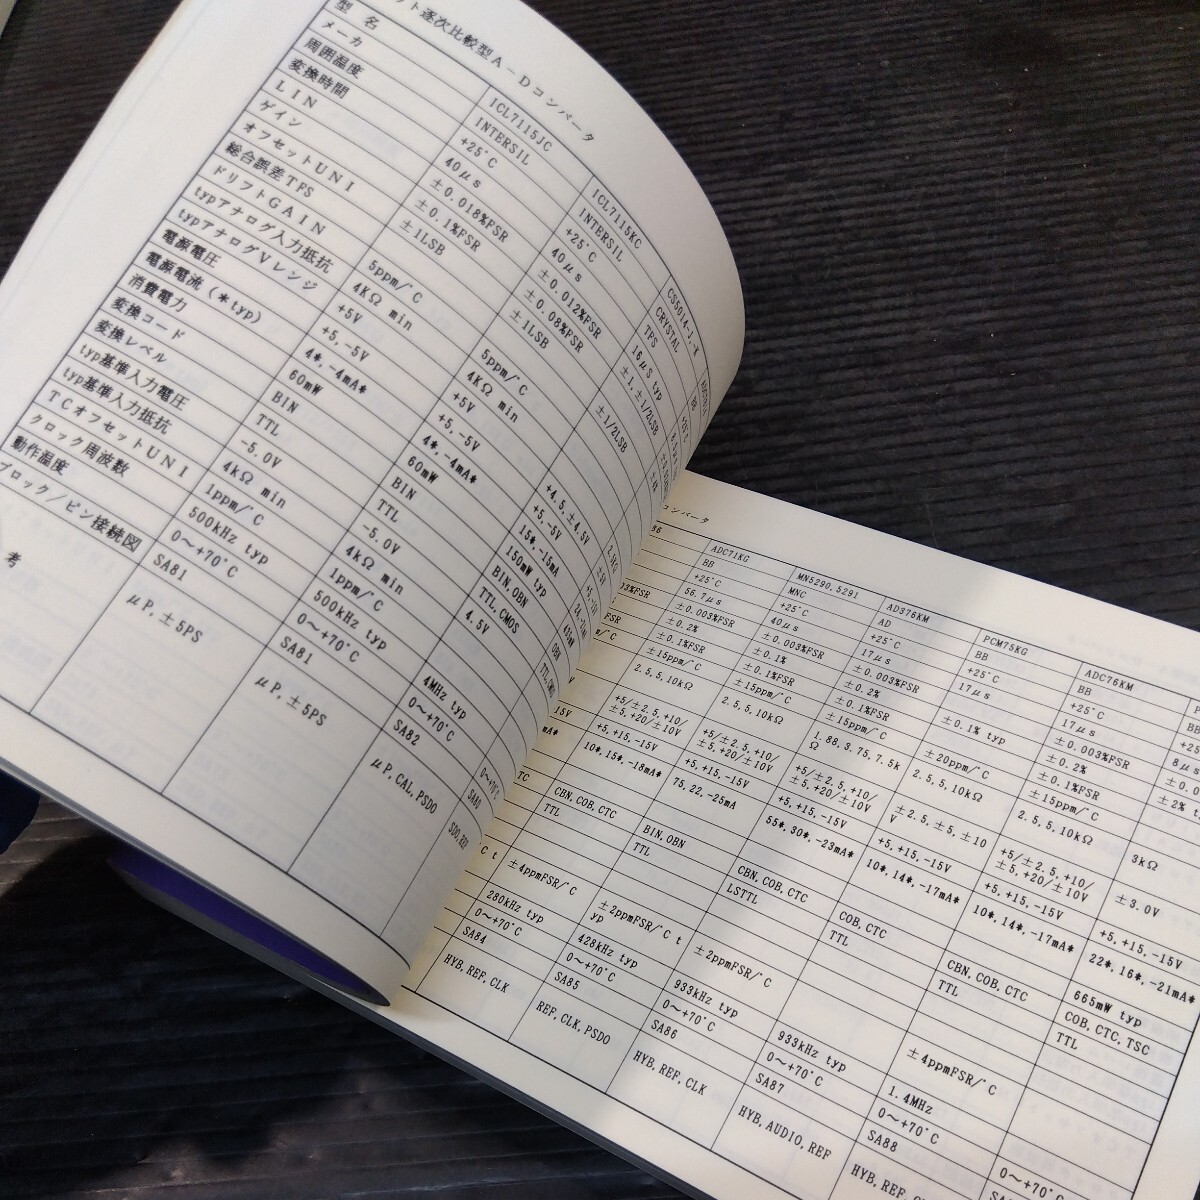 ット逐次比較型A-Dコンバータ
型名 ICL7115JC ICL7115KC CS5014-J,-K
メーカ INTERSIL INTERSIL CRYSTAL BB
周囲温度 +25°C +25°C TPS
変換時間 40μs 40μs 16μs typ
LIN ±0.018%FSR ±0.012%FSR ±1,±1/2LSB
ゲイン ±0.1%FSR ±0.08%FSR
オフセットUNI ±1LSB ±1LSB ±1/2LSB
総合誤差TFS
ドリフトGAIN 5ppm/°C 5ppm/°C
typアナログ入力抵抗 4KΩ min 4KΩ min
typアナログVレンジ +5V +5V +4.5,±4.5V
電源電圧 +5,-5V +5,-5V +5,-5V
電源電流(*typ) 4*,-4mA* 4*,-4mA* 15*,-15mA
消費電力 60mW 60mW 150mW typ
変換コード BIN BIN BIN,OBN
変換レベル TTL TTL TTL,CMOS
typ基準入力電圧 -5.0V -5.0V 4.5V
typ基準入力抵抗 4kΩ min 4kΩ min
TCオフセットUNI 1ppm/°C 1ppm/°C
クロック周波数 500kHz typ 500kHz typ 4MHz typ
動作温度 0~+70°C 0~+70°C 0~+70°C 0~+70°C
ブロック/ピン接続図 SA81 SA81 SA82
考 μP,±5PS μP,±5PS μP,CAL,PSDO SDO,REF
コンバータ
ADC71KG MN5290,5291 AD376KM PCM75KG ADC76KM
BB MNC AD BB BB
+25°C +25°C +25°C +25°C +25°C
56.7μs 40μs 17μs 17μs 17μs 8μs
±0.003%FSR ±0.003%FSR ±0.003%FSR ±0.003%FSR
±0.2% ±0.1% ±0.2% ±0.1% typ ±0.2%
±0.1%FSR ±0.1%FSR ±0.1%FSR ±0.1%FSR
±15ppm/°C ±15ppm/°C ±15ppm/°C ±20ppm/°C ±15ppm/°C
2.5,5,10kΩ 2.5,5,10kΩ 1.88,3.75,7.5kΩ 2.5,5,10kΩ 2.5,5,10kΩ 3kΩ
+5/±2.5,+10/±5,+20/±10V +5/±2.5,+10/±5,+20/±10V +5/±2.5,+10/±5,+20/±10V ±2.5,±5,±10V +5/±2.5,+10/±5,+20/±10V ±3.0V
+5,+15,-15V +5,+15,-15V +5,+15,-15V +5,+15,-15V +5,+15,-15V +5,+15,-15V
10*,15*,-18mA* 75,22,-25mA 55*,30*,-23mA* 10*,14*,-17mA* 10*,14*,-17mA* 22*,16*,-21mA*
665mW typ
CBN,COB,CTC BIN,OBN CBN,COB,CTC COB,CTC CBN,COB,CTC COB,CTC,TSC
TTL TTL LSTTL TTL TTL TTL
±4ppmFSR/°C ±2ppmFSR/°C typ ±2ppmFSR/°C ±4ppmFSR/°C
280kHz typ 428kHz typ 933kHz typ 933kHz typ 1.4MHz
0~+70°C 0~+70°C 0~+70°C 0~+70°C 0~+70°C 0~+70°C
SA84 SA85 SA86 SA87 SA88
HYB,REF,CLK REF,CLK,PSDO HYB,REF,CLK HYB,AUDIO,REF